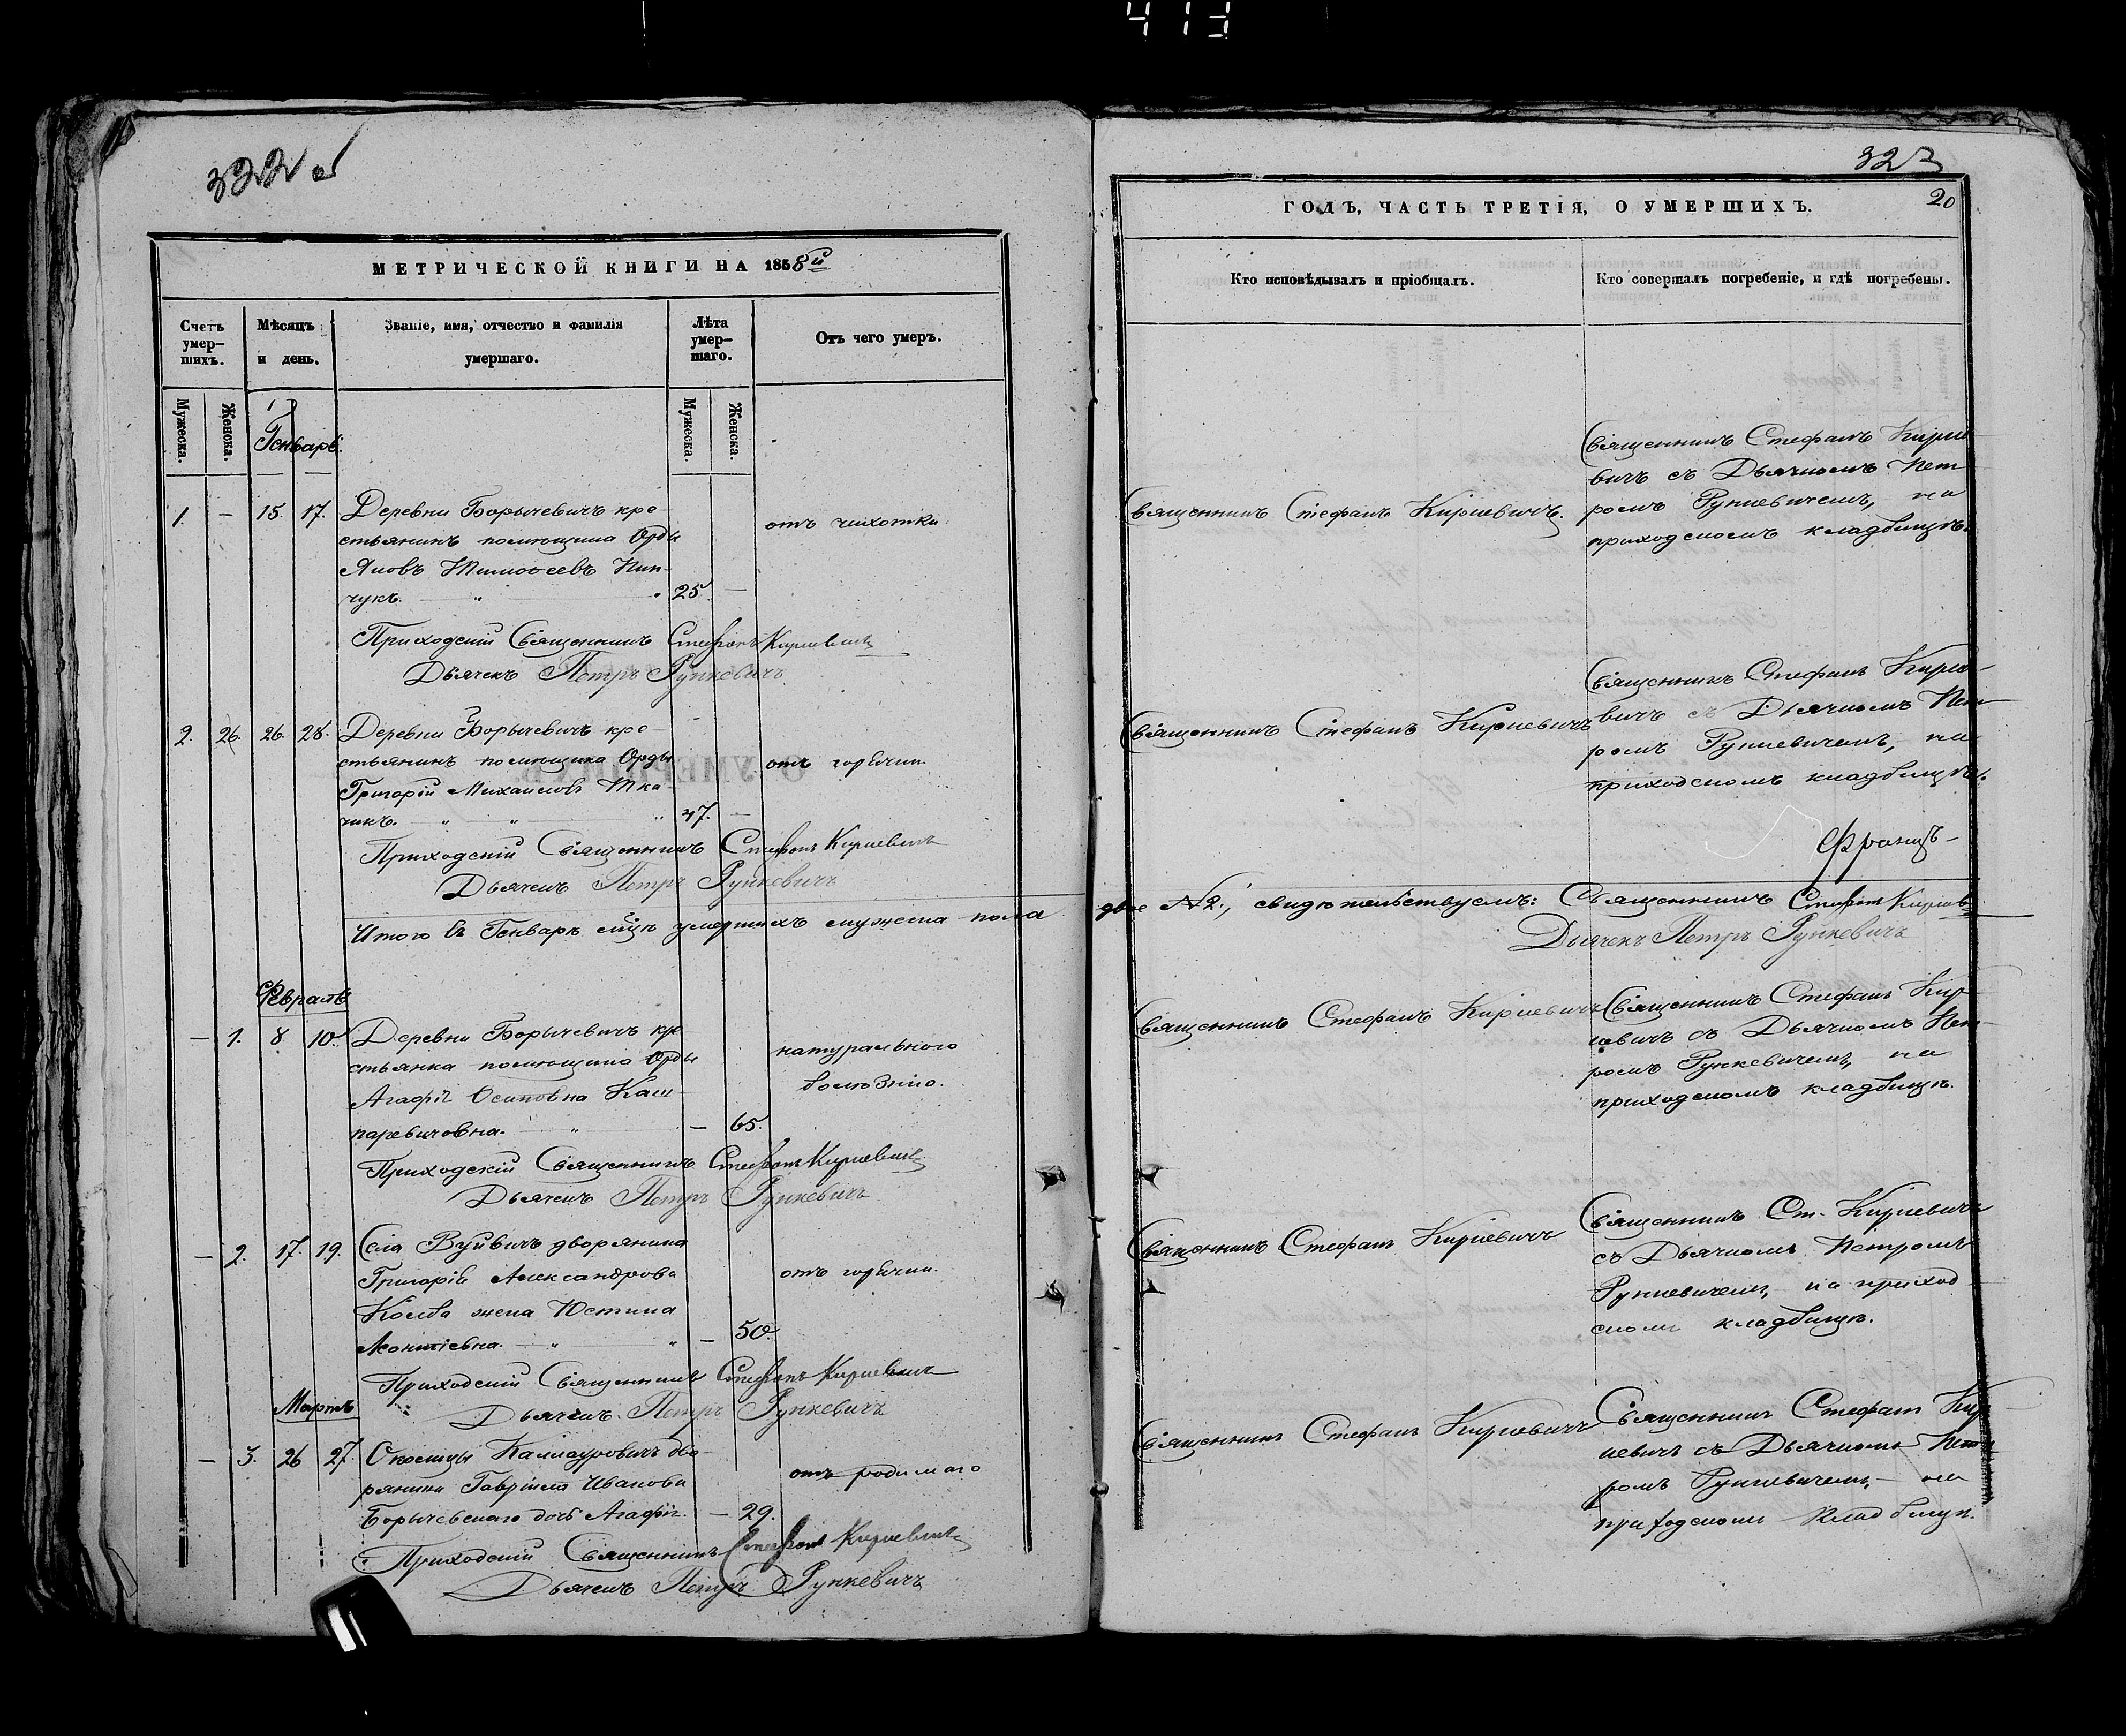 413
322 об
МЕТРИЧЕСКОЙ КНИГИ НА 1858й
Счетъ умер-шихъ.
Мѣсяцъ и день.
Званіе, имя, отчество и фамилія умершаго.
Лѣта умер-шаго.
Отъ чего умеръ.
Мужеска.
Женска.
Мужеска.
Женска.
Генварь.
1. — 15. 17. Деревни Борычевичъ кре-
стьянинъ помѣщика Орды
Яковъ Тимоѳеевъ Пин-
чукъ. 25. —
отъ чихотки.
Приходскій Священникъ Стефанъ Кириевичъ
Дьячекъ Петръ Рункевичъ
2. 26. 26. 28. Деревни Борычевичъ кре-
стьянинъ помѣщика Орды
Григорій Михаиловъ Тка-
чикъ. 47. —
отъ горячки
Приходскій Священникъ Стефанъ Кириевичъ
Дьячекъ Петръ Рункевичъ
Итого въ Генварѣ м̃цѣ умершихъ мужеска пола
Февраль
— 1. 8 10. Деревни Борычевичъ кре
стьянка помѣщика Орды
Агафія Осиповна Каш-
паревичовна. — 65.
натурального
болѣзнію.
Приходскій Священникъ Стефанъ Кириевичъ
Дьячекъ Петръ Рункевичъ
— 2. 17. 19. Села Вуйвичъ дворянина
Григорія Александрова
Колба жена Юстина
Леонтіевна. — 50.
отъ горячки.
Приходскій Священникъ Стефанъ Кириевичъ
Дьячекъ Петръ Рункевичъ
Мартъ
— 3. 26 27. Околицы Каллауровичъ дво-
рянина Гавріила Иванова
Борычевскаго дочь Агафія. — 29.
отъ родимаго
Приходскій Священникъ Стефанъ Кириевичъ
Дьячекъ Петръ Рункевичъ
323
20
ГОДЪ, ЧАСТЬ ТРЕТІЯ, О УМЕРШИХЪ.
Кто исповѣдывалъ и пріобщалъ.
Кто совершалъ погребеніе, и гдѣ погребены.
Священникъ Стефанъ Киріевичъ.
Священникъ Стефанъ Кирие-
вичъ съ Дьячкомъ Пет-
ромъ Рункевичемъ, на
приходскомъ кладбищѣ.
Священникъ Стефанъ Кириевичъ
Священникъ Стефанъ Кирие-
вичъ съ Дьячкомъ Пет-
ромъ Рункевичемъ, на
приходскомъ кладбищѣ.
двое №2., свидѣтельствуемъ: Священникъ Стефанъ Кириевичъ
Дьячекъ Петръ Рункевичъ
Священникъ Стефанъ Кириевичъ
Священникъ Стефанъ Кир-
иевичъ съ Дьячкомъ Пет-
ромъ Рункевичемъ, на
приходскомъ кладбищѣ.
Священникъ Стефанъ Киріевичъ
Священникъ Ст. Киріевичъ
съ Дьячкомъ Петромъ
Рункевичемъ, на приход-
скомъ кладбищѣ.
Священникъ Стефанъ Кириевичъ
Священникъ Стефанъ Кир-
иевичъ съ Дьячкомъ Пет-
ромъ Рункевичемъ, на
приходскомъ кладбищѣ.